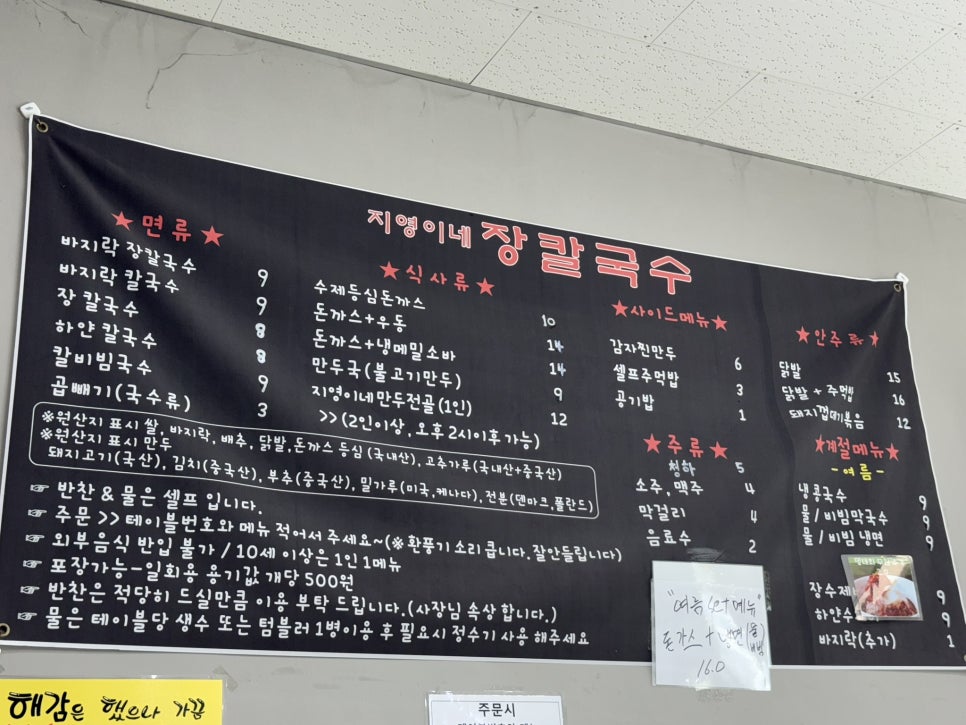 지영이네 장칼국수
★ 면 류 ★
바지락 장칼국수 9
바지락 칼국수 9
장 칼국수 8
하얀 칼국수 8
칼비빔국수 9
곱빼기(국수류) 3
★ 식 사 류 ★
수제등심돈까스 10
돈까스+우동 14
돈까스+냉메밀소바 14
만두국(불고기만두) 9
지영이네만두전골(1인) 12
>>(2인이상, 오후 2시이후가능)
★사이드메뉴★
감자찐만두 6
셀프주먹밥 3
공기밥 1
★ 주 류 ★
청하 5
소주, 맥주 4
막걸리 4
음료수 2
★ 안주류 ★
닭발 15
닭발 + 주먹밥 16
돼지껍데기볶음 12
★계절메뉴★
- 여름 -
냉콩국수 9
물 / 비빔막국수 9
물 / 비빔 냉면 9
장수제 9
하얀수 9
바지락(추가) 1
※원산지 표시 쌀, 바지락, 배추, 닭발,돈까스 등심 (국내산), 고추가루(국내산+중국산)
※원산지 표시 만두
돼지고기(국산), 김치(중국산), 부추(중국산), 밀가루(미국,케나다), 전분(덴마크,폴란드)
☞ 반찬 & 물은 셀프 입니다.
☞ 주문 >> 테이블번호와 메뉴 적어서 주세요~(※환풍기 소리 큽니다.잘안들립니다)
☞ 외부음식 반입 불가 / 10세 이상은 1인 1메뉴
☞ 포장가능-일회용 용기값 개당 500원
☞ 반찬은 적당히 드실만큼 이용 부탁 드립니다.(사장님 속상 합니다.)
☞ 물은 테이블당 생수 또는 텀블러 1병이용 후 필요시 정수기 사용 해주세요
"여름 set 메뉴"
돈가스 + 냉면(물/비빔)
16.0
해감은 했으나 가끔
주문시